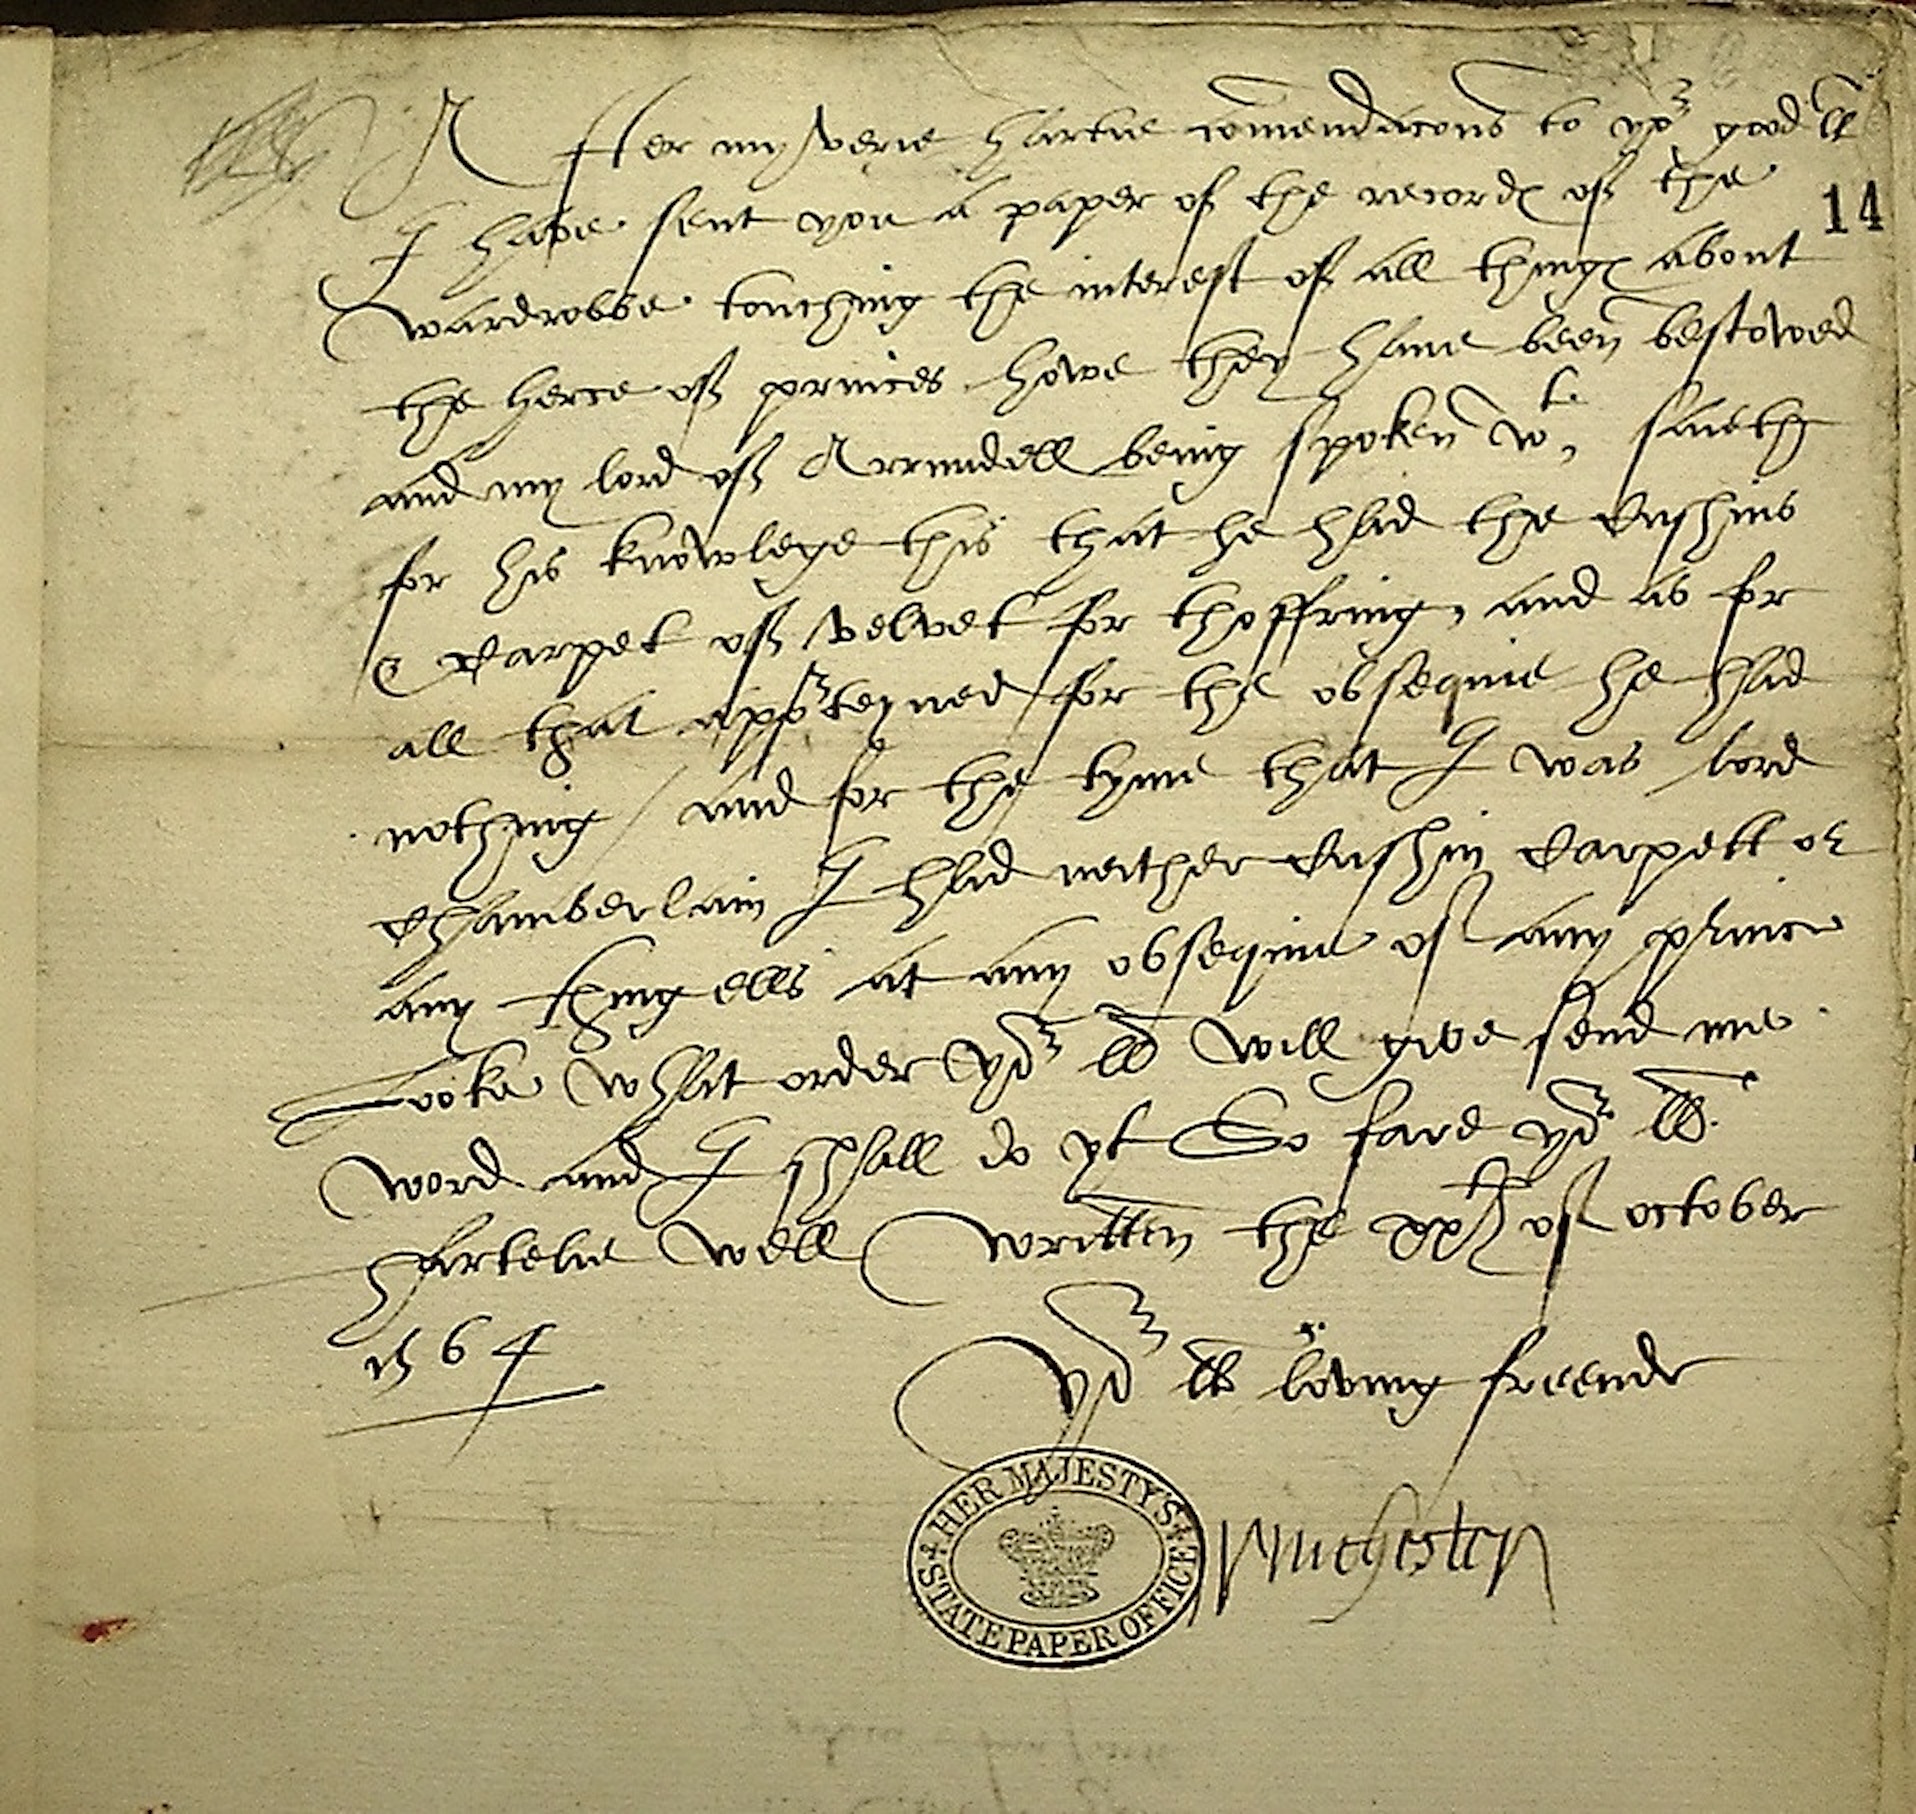 After my verie hartie comendacons to yor good ll
14
I have sent you a paper of the records of the
wardrobbe touching the interest of all things about
the herce of princes howe they have been bestowed
and my lord of Arrundell being spoken wt, saieth
for his knowlege this that he had the Cushins
& Carpet of velvet for thoffring, and as for
all that apperteyned for the obsequie he had
nothing / and for the tyme that I was lord
Chamberlain I had neither Cushin Carpett or
any thing ells at any obsequie of any prince
Looke what order yor ll will give send me
word and I shall do yt So fare yor ll.
hartelie well Written the xxth of october
1564
Yor ll loving freende
HER MAJESTY'S STATE PAPER OFFICE
Winchester